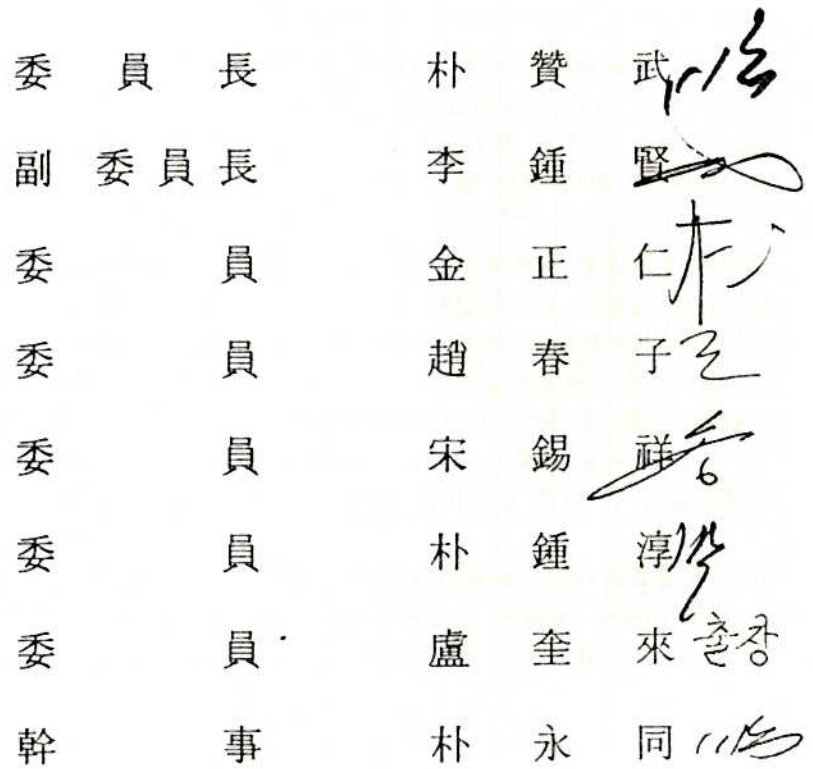 委員長 朴贊武
副委員長 李鍾賢
委員 金正仁
委員 趙春子
委員 宋錫祥
委員 朴鍾淳
委員 盧奎來 출장
幹事 朴永同